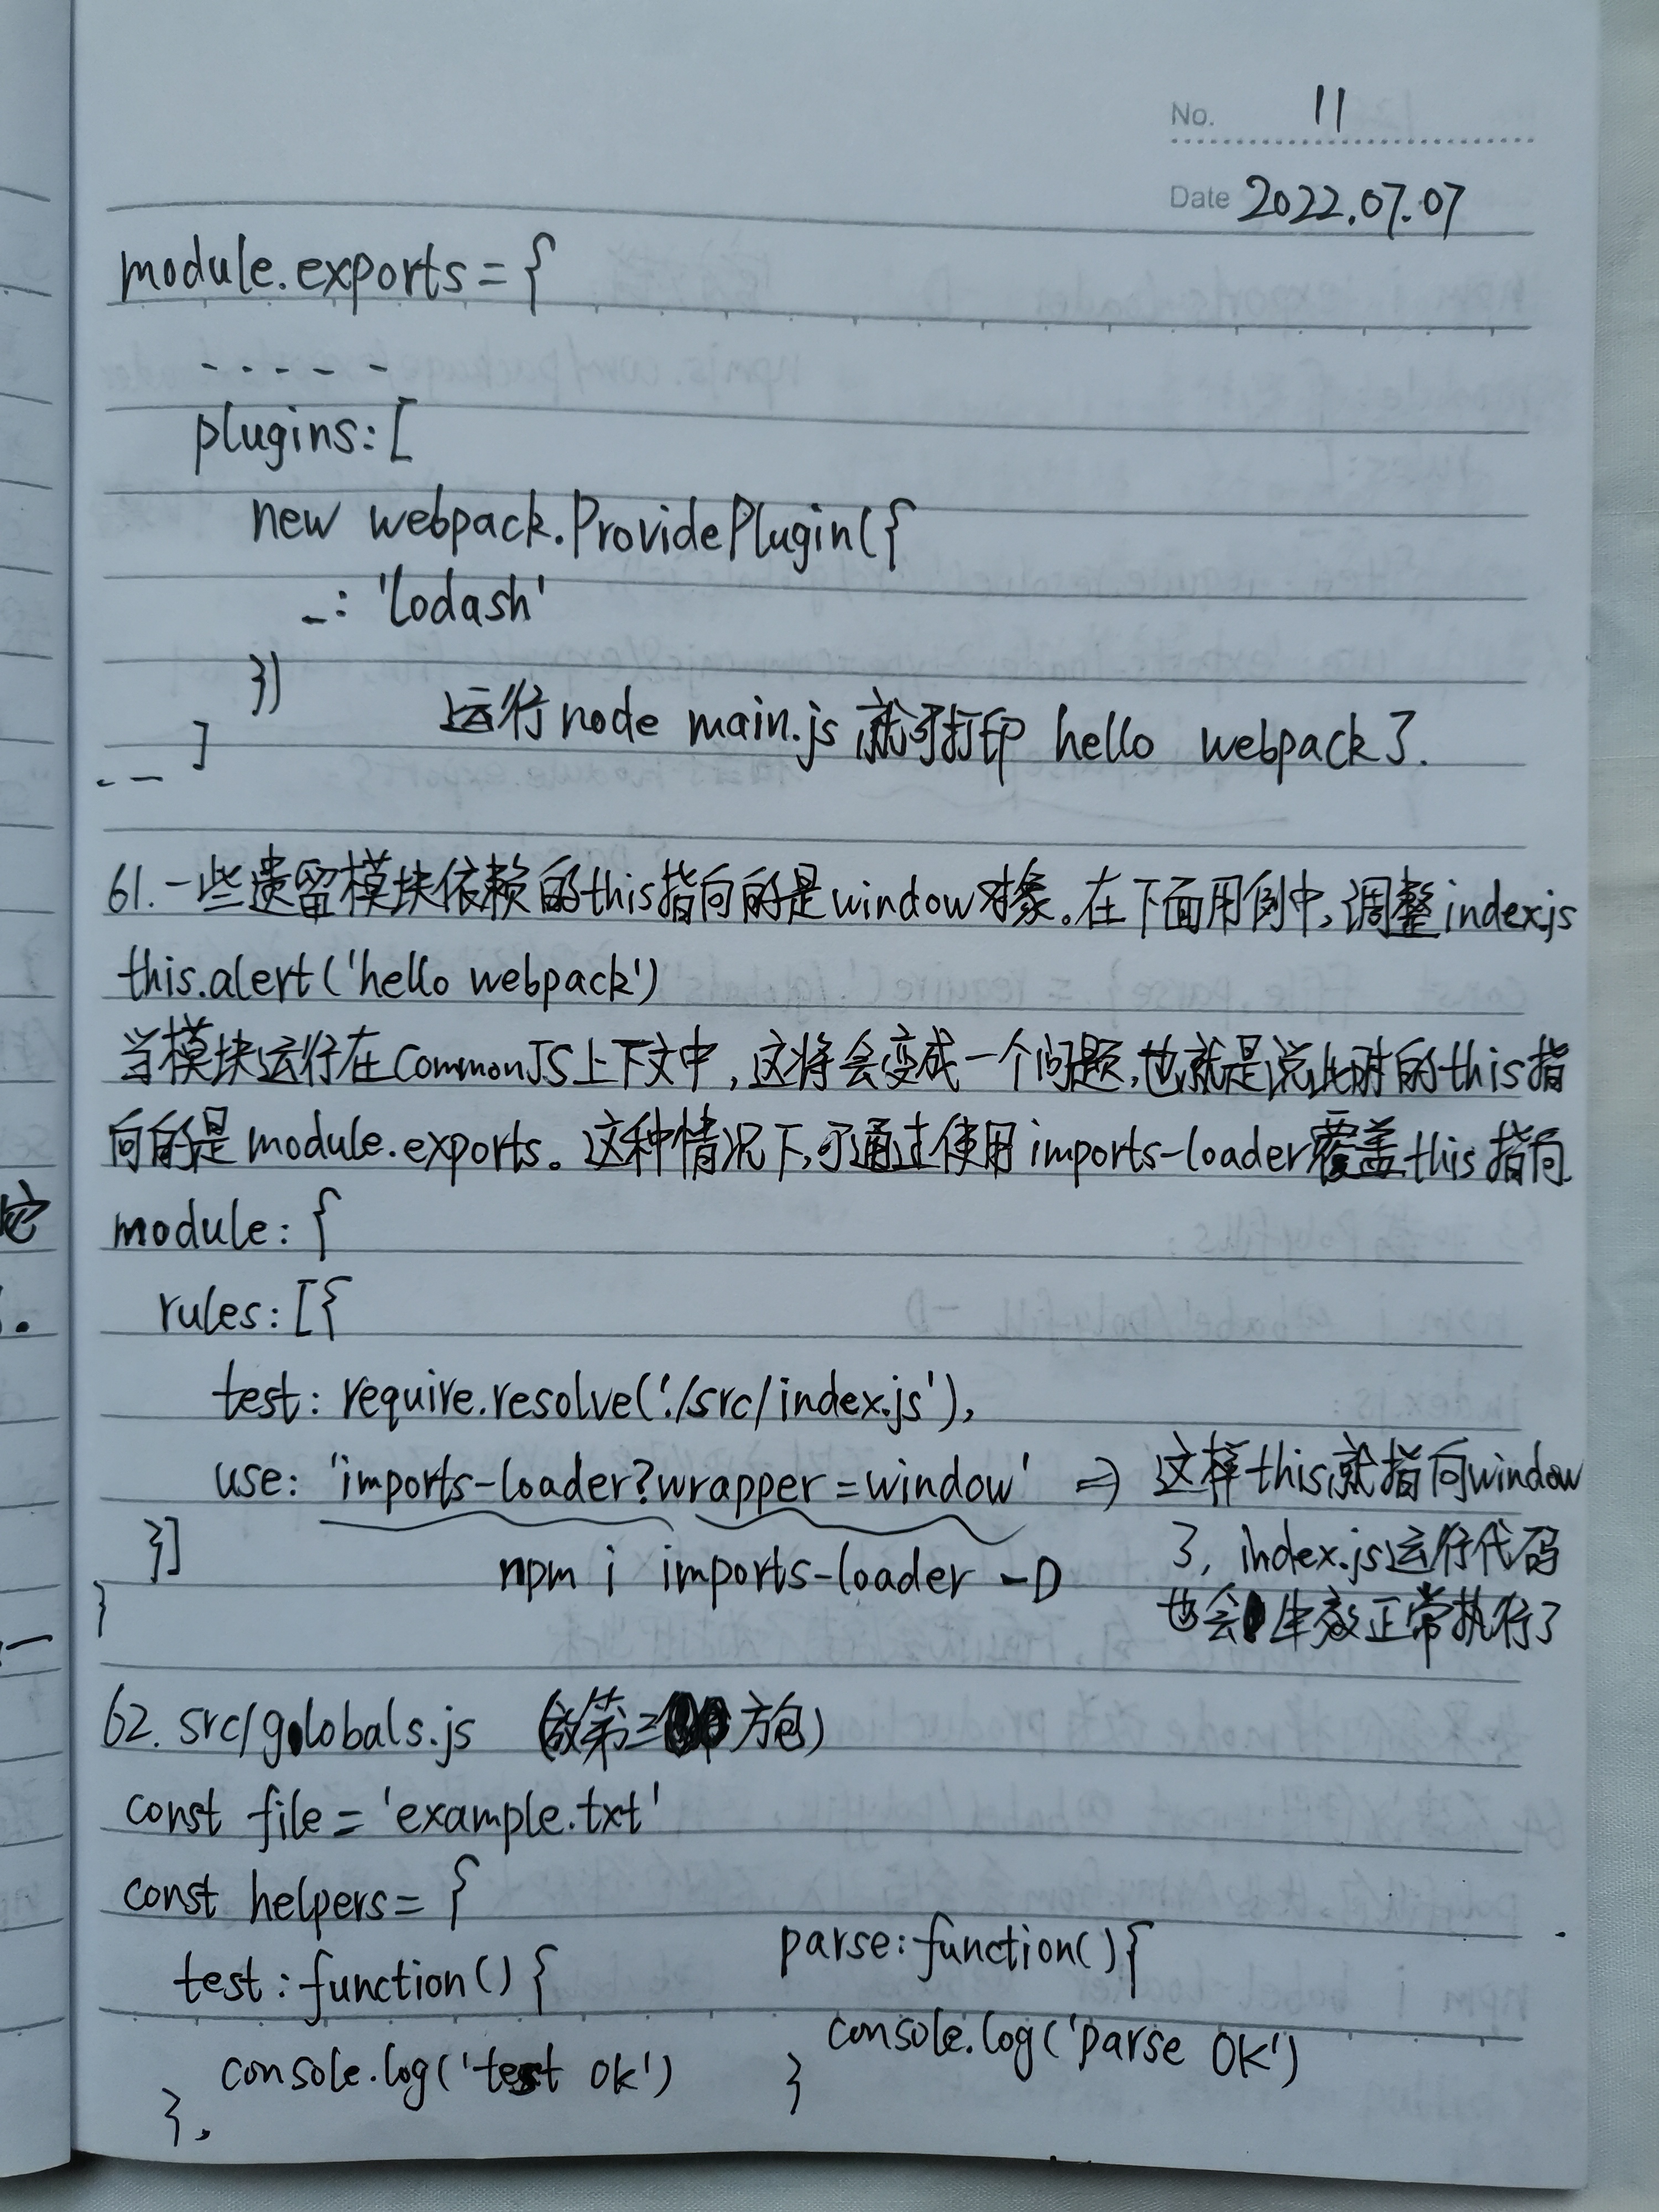 No. 11
Date 2022.07.07
module.exports={
.....
plugins:[
new webpack.ProvidePlugin({
_: 'lodash'
})
运行node main.js 就可打印 hello webpack了.
]
61.一些遗留模块依赖的this指向的是window对象。在下面用例中,调整index.js
this.alert('hello webpack')
当模块运行在CommonJS上下文中,这将会变成一个问题,也就是说此时的this指
向的是module.exports。这种情况下,可通过使用imports-loader覆盖this指向
module: {
rules: [{
test: require.resolve('./src/index.js'),
use: 'imports-loader?wrapper=window' => 这样this就指向window
}] 了, index.js运行代码
npm i imports-loader -D
} 也会生效正常执行了
62. src/globals.js (做第三方包)
const file = 'example.txt'
const helpers= {
test: function() { parse: function(){
console.log('test ok') console.log('parse OK')
}, }